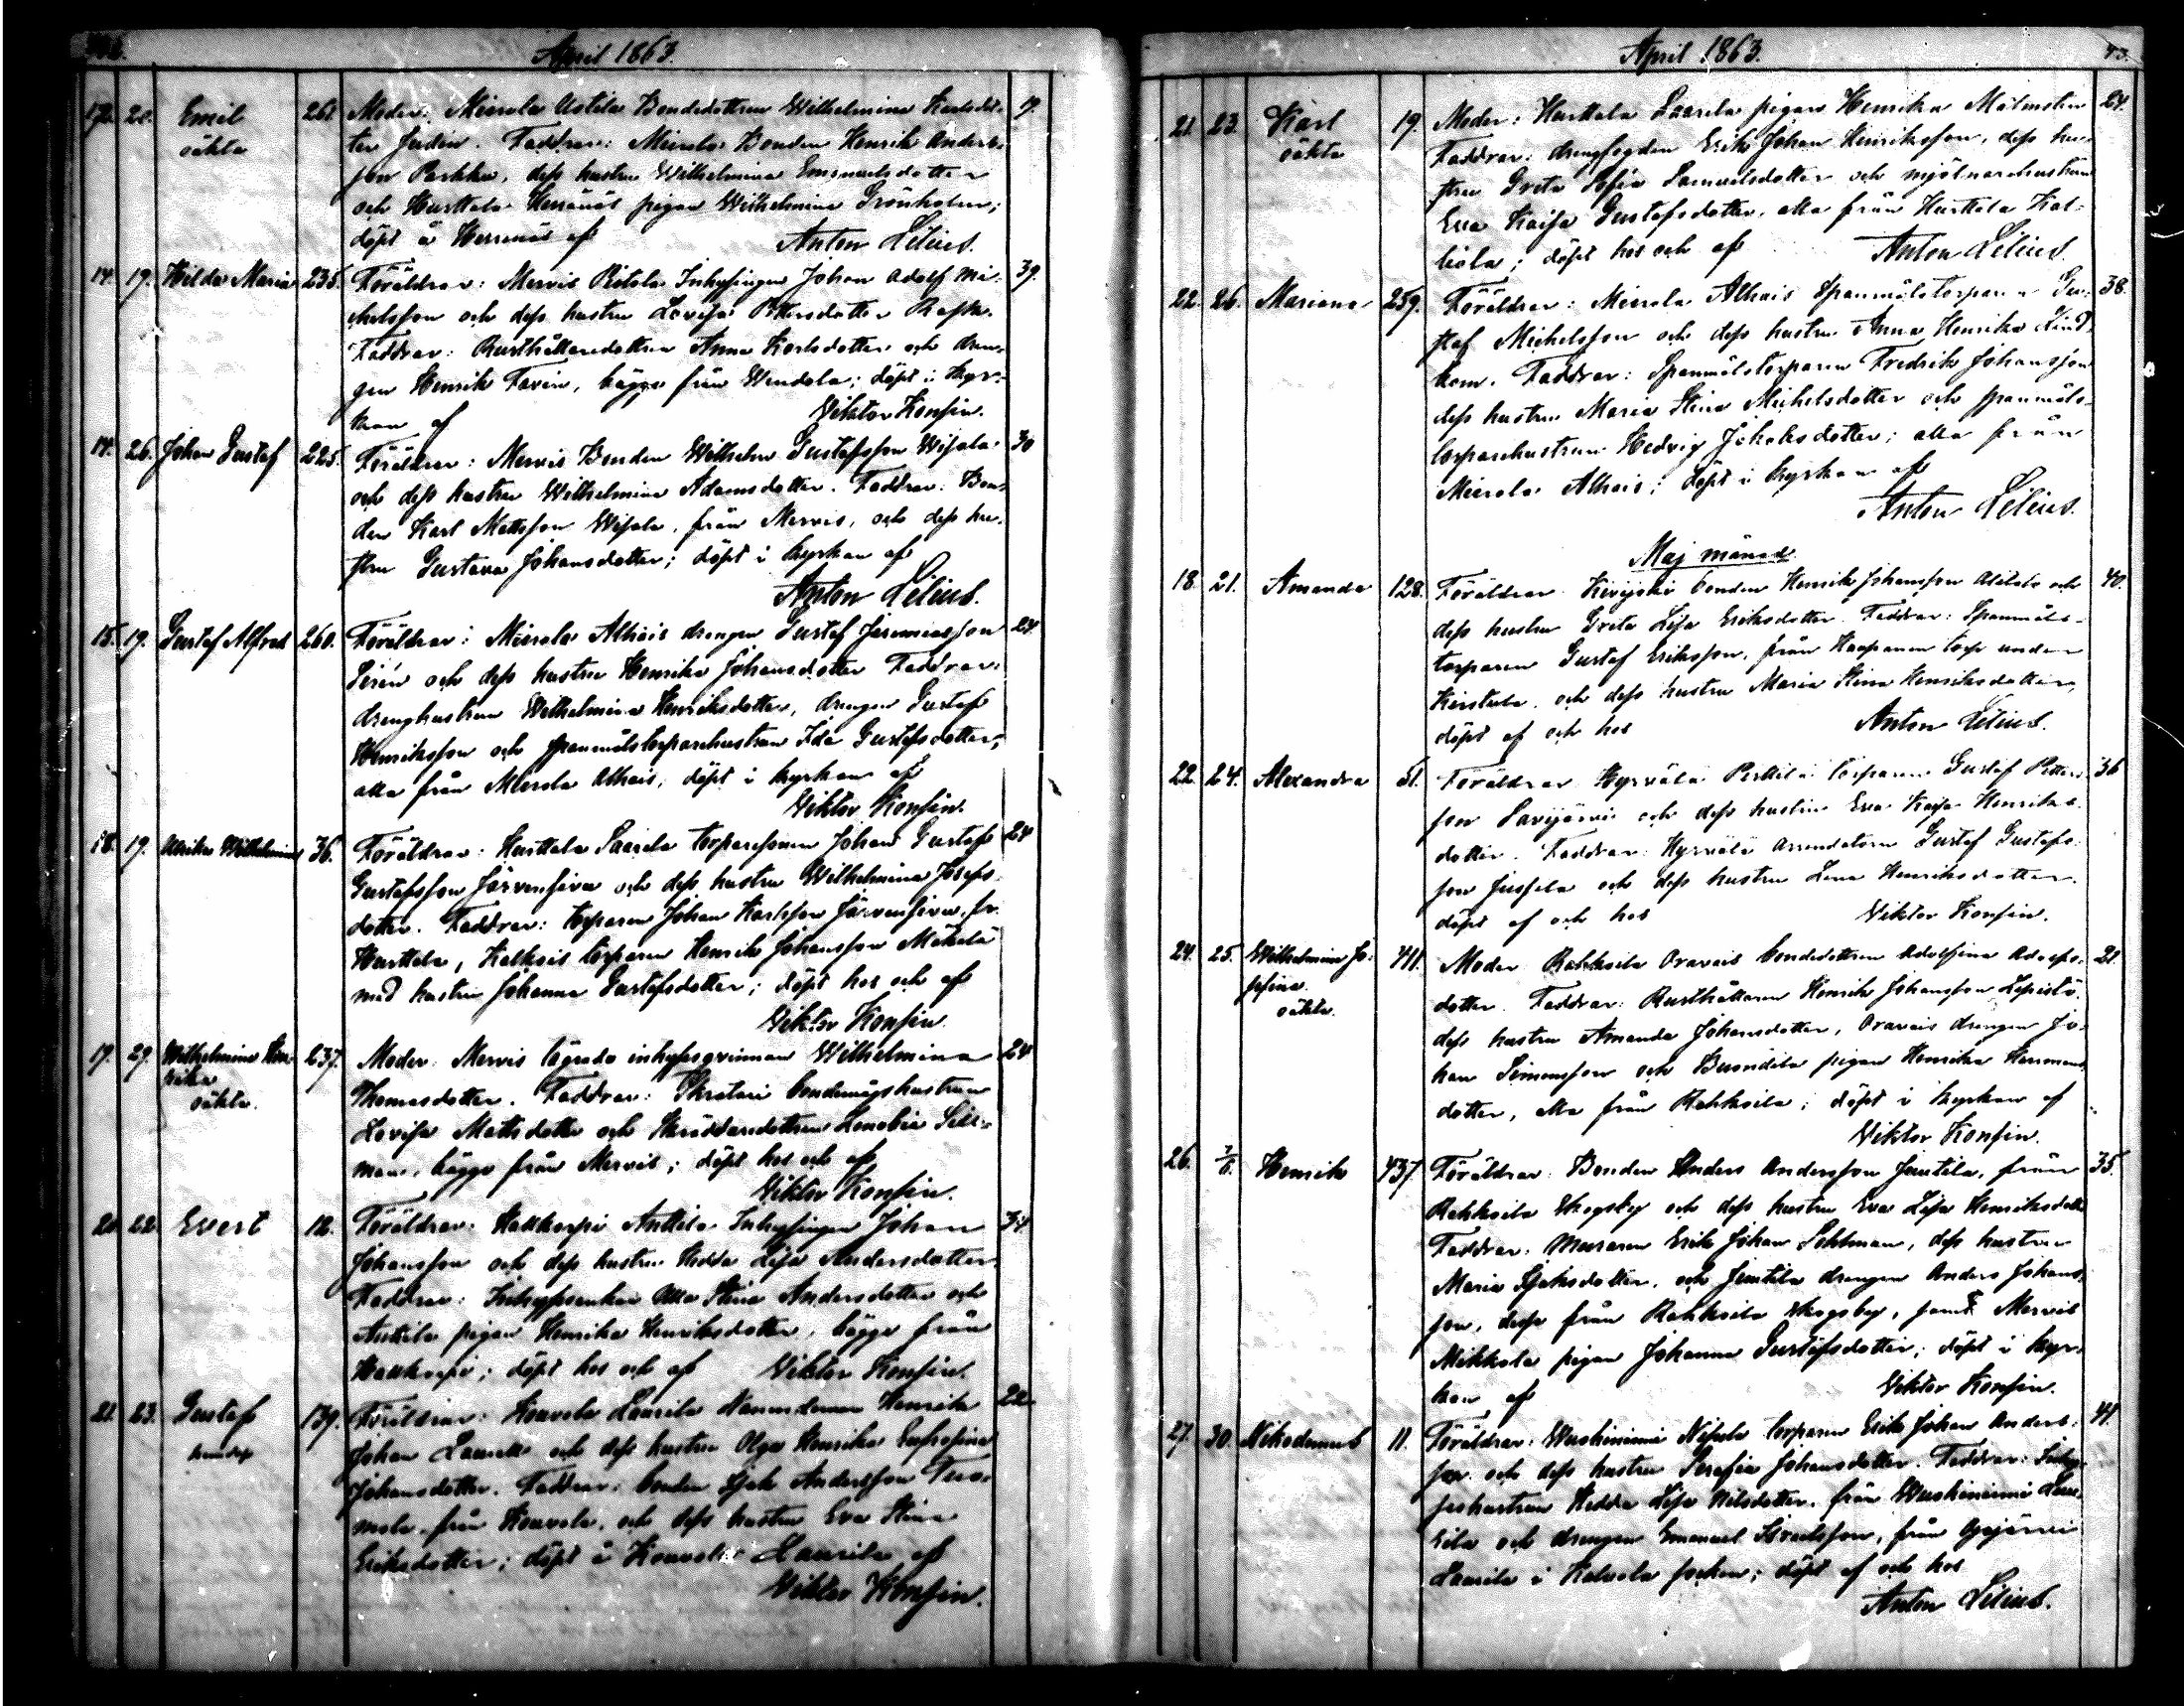 April 1863.
12. 20. Emil 261. Moder: Mierola Uotila Bondedottren Wilhelmina Karlsdot- 19.
oäkta ter Judin. Faddrar: Mierola Bonden Henrik Anders-
son Parkku, dess hustru Wilhelmina Emanuelsdotter
och Hurttala Herränäs pigan Wilhelmina Grönholm;
döpt å Herrnäs af Anton Lilius.
14. 19. Hilda Maria 235. Föräldrar: Mervis Ristola Inhysingen Johan Adolf Mi- 39.
chelsson och dess hustru Lovisa Pettersdotter Rask.
Faddrar: Rusthållaredottren Anna Karlsdotter och dren-
gen Henrik Favén, bägge från Wendola; döpt i kyr-
kan af Viktor Konsin.
14. 26. Johan Gustaf 225. Föräldrar: Mervis Bonden Wilhelm Gustafsson Wisala 30
och dess hustru Wilhelmina Adamsdotter. Faddrar: Bon-
den Karl Mattsson Wisala, från Mervis, och dess hu-
stru Gustava Johansdotter; döpt i kyrkan af
Anton Lilius.
15. 19. Gustaf Alfred 260. Föräldrar: Mierola Alhais drengen Gustaf Jeremiasson 24.
Sirén och dess hustru Henrika Johansdotter Faddrar:
drenghustrun Wilhelmina Henriksdotter, drengen Gustaf
Henriksson och spanmålstorparehustrun Ida Gustafsdotter,
alla från Mierola Alhais, döpt i kyrkan af
Viktor Konsin.
18. 19. Ulrika Wilhelmina 36. Föräldrar: Hurttala Saarela torparesonen Johan Gustaf 24
Gustafsson Järvensivu och dess hustru Wilhelmina Josefs-
dotter. Faddrar: torparen Johan Karlsson Järvensivu, fr.
Hurttala, Kalksis torparen Henrik Johansson Mäkelä
med hustru Johanna Gustafsdotter; döpt hos och af
Viktor Konsin.
19. 29. Wilhelmina Hen- 237. Moder: Mervis inhysesqvinnan Wilhelmina 24
rika Thomasdotter. Faddrar: bondemågshustrun
oäkta. Lovisa Matsdotter och Skräddaredottren Zenobia Sill-
man, bägge från Mervis; döpt hos och af
Viktor Konsin.
20. 22. Evert 12. Föräldrar: Hattkorpi Anttila Inhysingen Johan 34
Johansson och dess hustru Hedda Lisa Andersdotter.
Faddrar: Inhysesenkan Ulla Stina Andersdotter och
Anttila pigan Henrika Henriksdotter, bägge från
döpt hos och af Viktor Konsin.
21. 23. Gustaf 139. Föräldrar: Kouvola Laurila Nämndeman Henrik 22
Johan Laurell och dess hustru Olga Henrika Eufrosina
Johansdotter. Faddrar: bonden Isak Andersson Tuo-
mola, från Kouvola, och dess hustru Eva Stina
Eriksdotter; döpt å Kouvola Laurila af
Viktor Konsin.
April 1863. 43.
21. 23. Karl 19. Moder: Hurttala Saarela pigan Henrika Malmsten 24.
oäkta Faddrar: drengfogden Erik Johan Henriksson, dess hu-
stru Greta Sofia Samuelsdotter och mjölnarehustrun
Eva Kaisa Gustafsdotter, alla från Hurttala Kal-
liola; döpt hos och af Anton Lilius.
22. 26. Mariana 259. Föräldrar: Mierola Alhais Spanmålstorparen Gu- 38.
staf Michelsson och dess hustru Anna Henrika Lind-
kom. Faddrar: Spanmålstorparen Fredrik Johansson
dess hustru Maria Stina Michelsdotter och spanmåls-
torparehustrun Hedvig Jakobsdotter; alla från
Mierola Alhais; döpt i kyrkan af
Anton Lilius.
Maj månad
18. 21. Amanda 128. Föräldrar. bonden Henrik Johansson Alitalo och 40.
dess hustru Greta Lisa Eriksdotter. Faddrar: Spanmåls-
torparen Gustaf Eriksson, från Haapanen torp under
Kirstula, och dess hustru Maria Stina Henriksdotter,
döpt af och hos Anton Lilius.
22. 24. Alexandra 51. Föräldrar Hyrvälä Perttilä torparen Gustaf Petters- 36
son Savijärvi och dess hustru Eva Kaisa Henriks-
dotter. Faddrar: Hyrvälä Arrendatorn Gustaf Gustafs-
son Jussila och dess hustru Lena Henriksdotter.
döpt af och hos Viktor Konsin.
24. 25. Wilhelmina Jo- 411. Moder Rahkoila Oravais bondedottren Adolfina Adolfs- 21.
sefina. dotter. Faddrar: Rusthållaren Henrik Johansson Lepistö,
oäkta. dess hustru Amanda Johansdotter, Oravais drengen Jo-
han Simonsson och pigan Henrika Hermans-
dotter, alla från Rahkoila; döpt i kyrkan af
Viktor Konsin.
26. 7/6. Henrik 437. Föräldrar: Bonden Anders Andersson Juutila, från 35.
Rahkoila Skogsby och dess hustru Eva Lisa Henriksdotter
Faddrar: Muraren Erik Johan Sohlman, dess hustru
Maria Isaksdotter, och Juutila drengen Anders Johans-
son, desse från Rahkoila Skogsby, samt Mervis
Mikkola pigan Johanna Gustafsdotter; döpt i kyr-
kan af Viktor Konsin.
27. 30. Nikodemus 11. Föräldrar: Wuohiniemi torparen Erik Johan Anders- 41.
son och dess hustru Serafia Johansdotter. Faddrar: Inhy-
seshustrun Hedda Lisa Nilsdotter, från Wuohiniemi Lau-
rila och drengen Emanuel Israelsson, från Ojajärvi
Laurila i Kalvola socken; döpt af och hos
Anton Lilius.